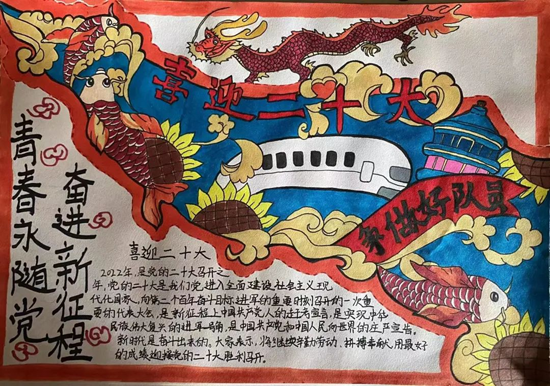 喜迎二十大
争做好队员
青春永随党
奋进新征程
喜迎二十大
2022年,是党的二十大召开之
年,党的二十大是我们党进入全面建设社会主义现
代化国家、向第二个百年奋斗目标进军的重要时刻召开的一次重
要的代表大会,是新征程上中国共产党人的
族伟大复兴的进军号角,是中国共产党和中国人民向世界的庄严宣告。
新时代是奋斗出来的。大家表示,将继续辛勤劳动、拼搏奉献,用最好
的成绩迎接党的二十大胜利召开。